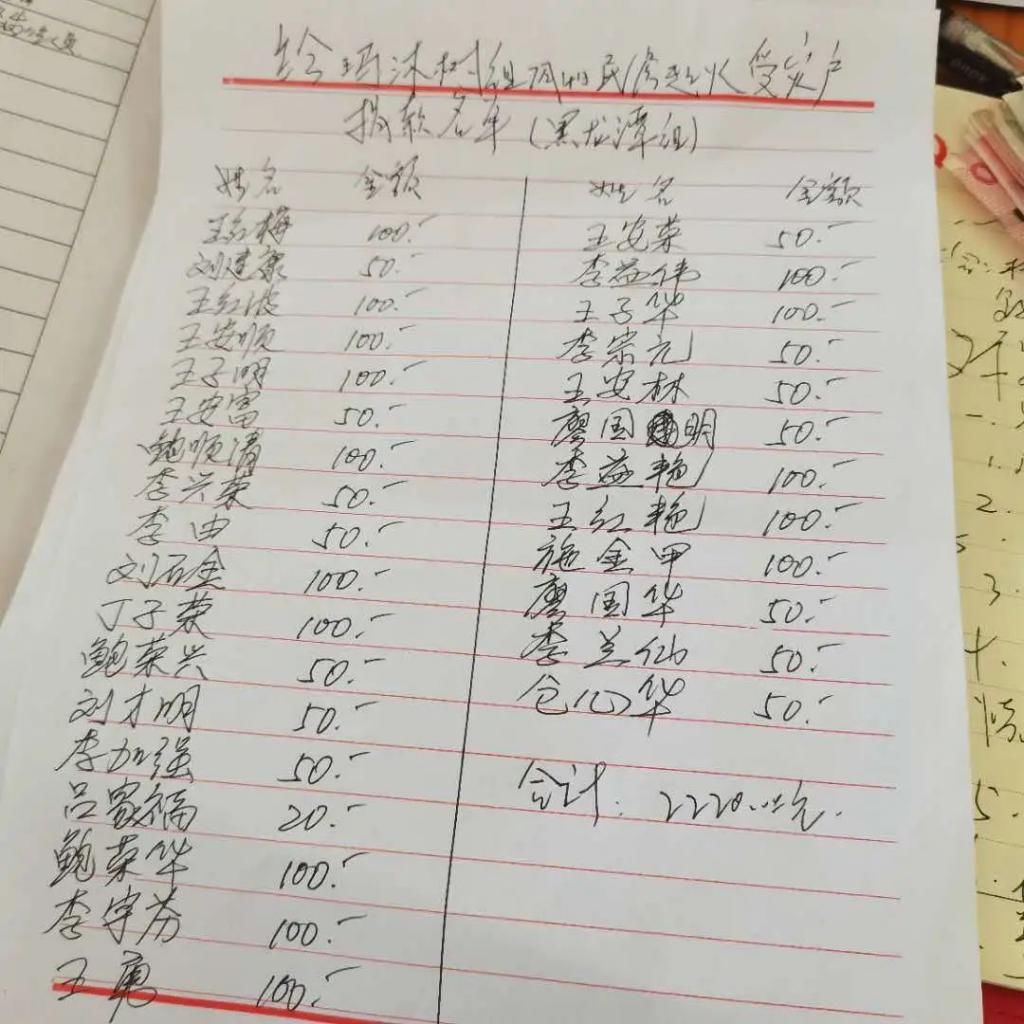 给 沐树组 民房起火受灾户
捐款名单(黑龙潭组)
姓名 金额
王红梅 100.-
刘建康 50.-
王红波 100.-
王安顺 100.-
王子明 100.-
王安富 50.-
鲍顺清 100.-
李兴荣 50.-
李由 50.-
刘石金 100.-
丁子荣 100.-
鲍荣兴 50.-
刘才明 50.-
李加强 50.-
吕家福 20.-
鲍荣华 100.-
李宇芬 100.-
王勇 100.-
姓名 金额
王安荣 50.-
李益伟 100.-
王子华 100.-
李宗元 50.-
王安林 50.-
廖国明 50.-
李益艳 100.-
王红艳 100.-
施金甲 100.-
廖国华 50.-
李兰仙 50.-
仓心华 50.-
合计. 2220.00元.